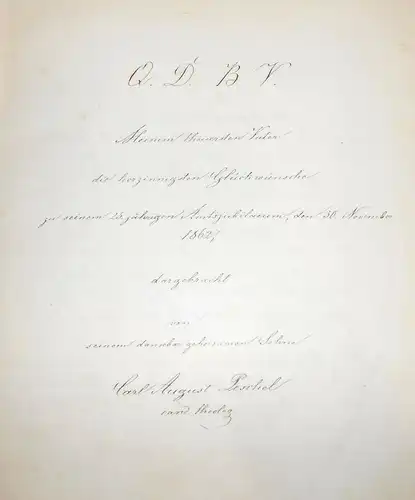 Q. D. B. V.
Meinem theuersten Vater
die herzinnigsten Glückwünsche
zu seinem 25jährigen Amtsjubilaeum, den 30. November
1862,
dargebracht
von
seinem dankbar gehorsamen Sohne
Carl August Peschel
cand. theolog.